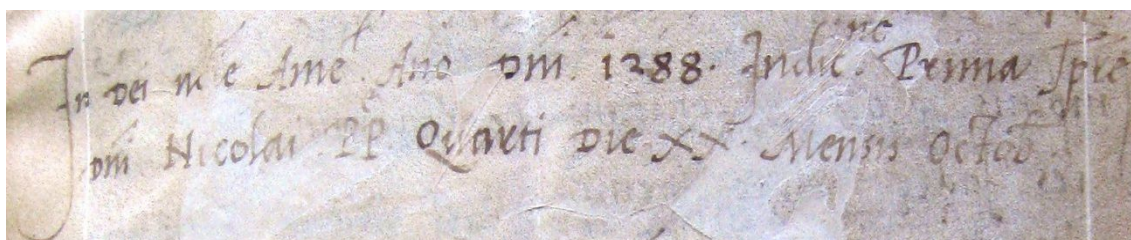 In Dei nīe Amē. Ano Dnī 1288. Indicne. Prima Tpre
Dnī Nicolai PP Quarti Die XX. Mensis Octob